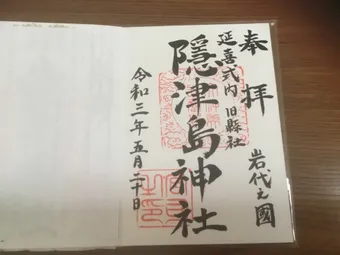 奉拝
岩代之國
延喜式内 旧縣社
隱津島神社
令和三年五月二十日